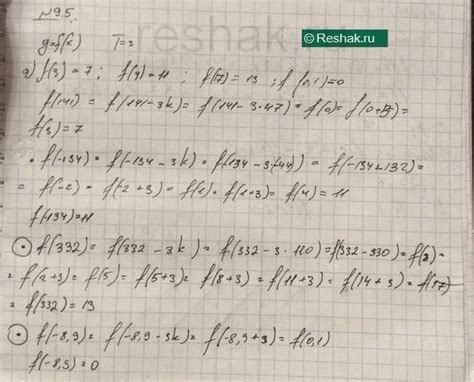 №9.5.
© Reshak.ru
reshak.ru
y=f(x) T=3
а) f(3)=7; f(4)=11; f(17)=13; f(0,1)=0
f(141)=f(141-3k)=f(141-3·47)=f(0)=f(0+3)=
f(3)=7
• f(-134)=f(-134-3k)=f(134-3·(44))=f(-134+132)=
= f(-2)=f(-2+3)=f(1)=f(1+3)=f(4)=11
f(134)=11
f(332)=f(332-3k)=f(332-3·110)=f(332-330)=f(2)=
= f(2+3)=f(5)=f(5+3)=f(8+3)=f(11+3)=f(14+3)=f(17)
= f(332)=13
f(-8,9)=f(-8,9-3k)=f(-8,9+3)=f(0,1)
f(-8,9)=0